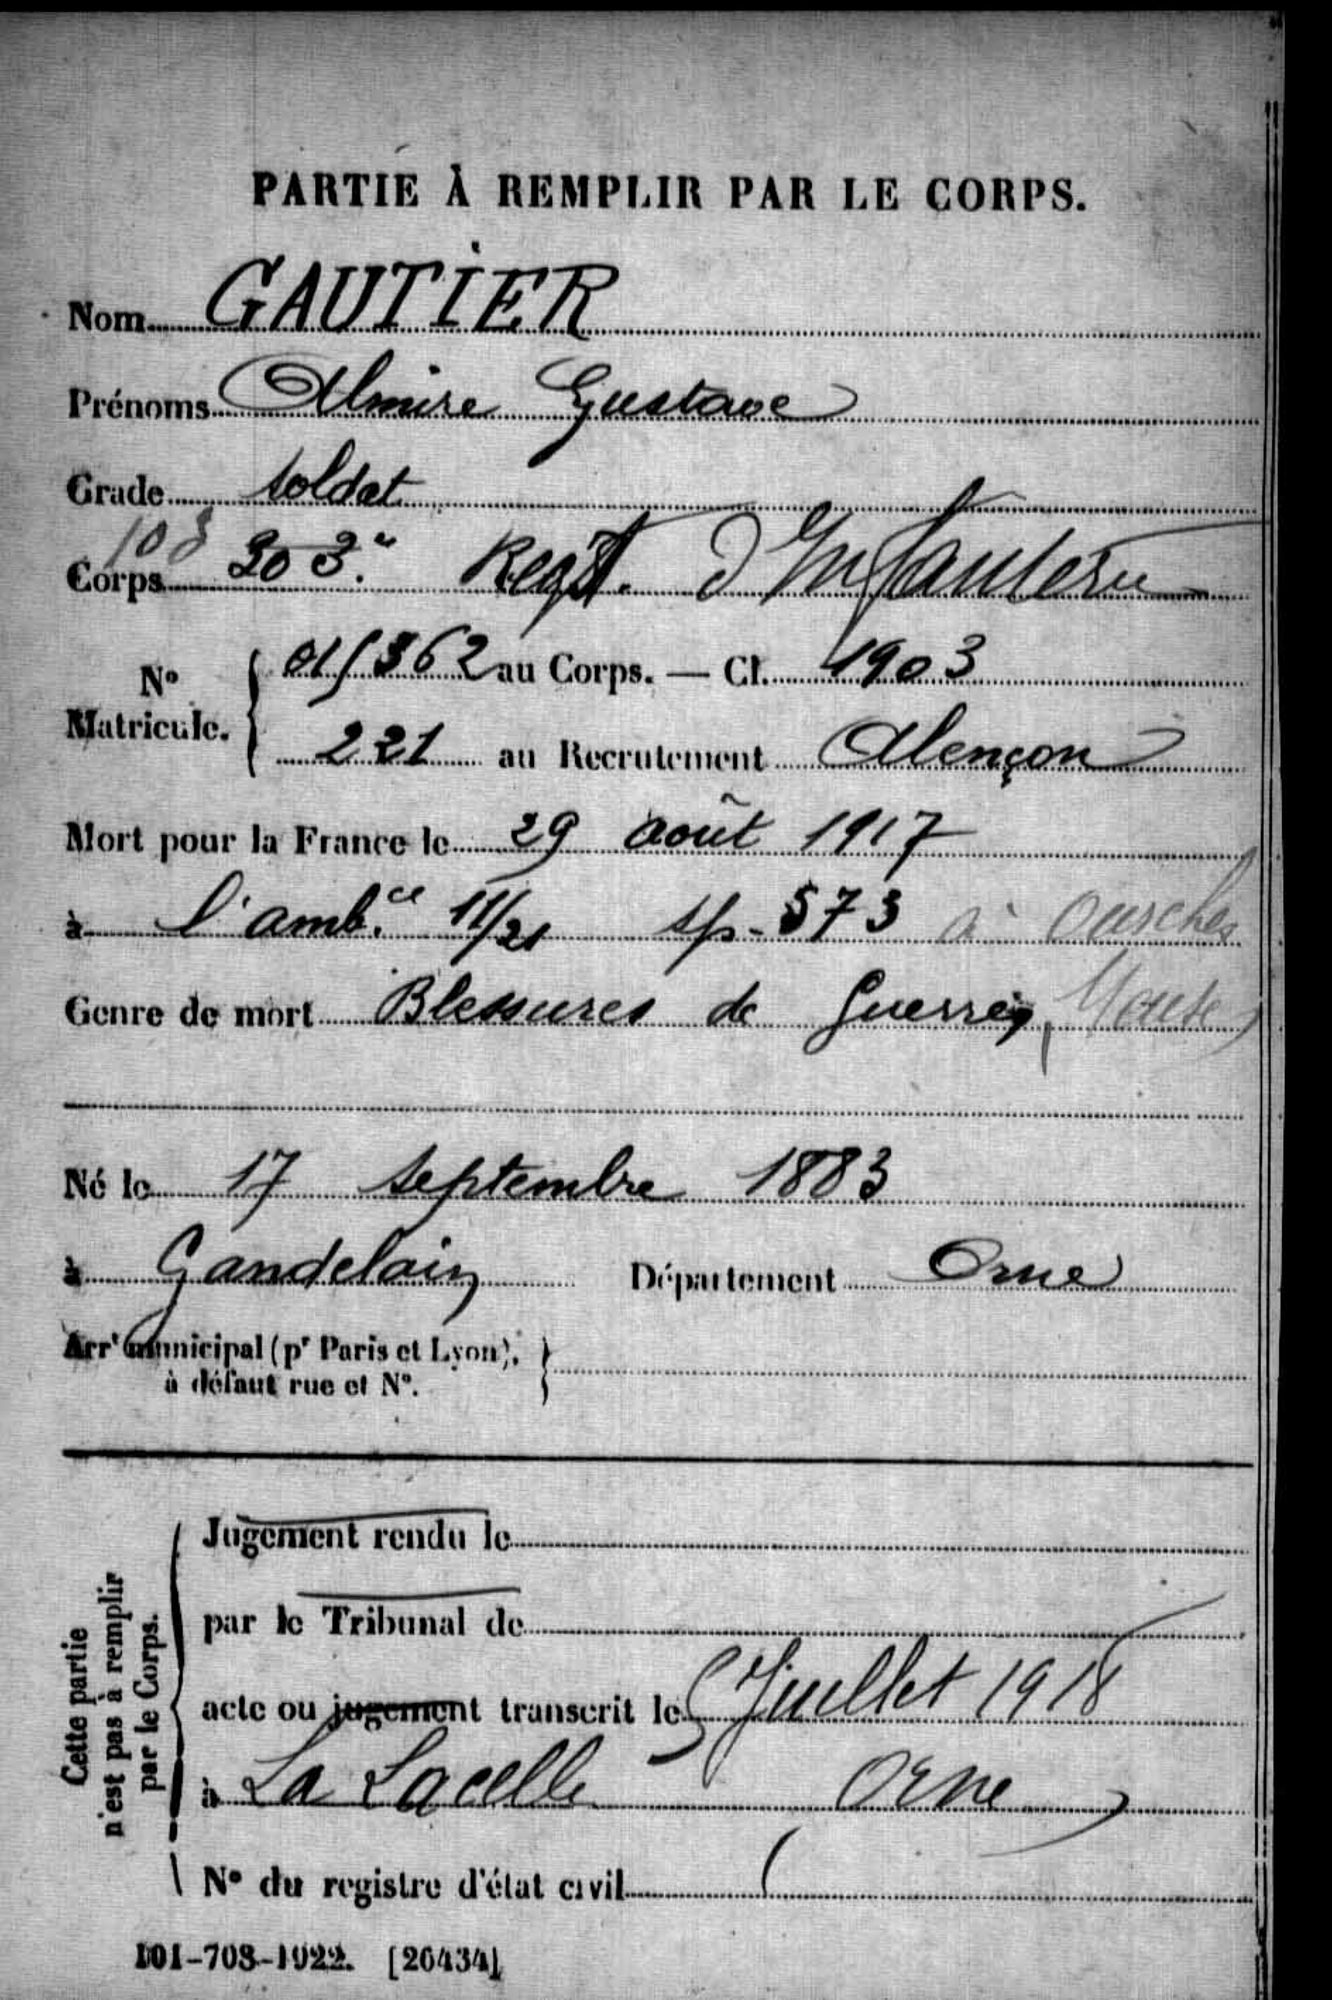 PARTIE À REMPLIR PAR LE CORPS.
Nom GAUTIER
Prénoms Almire Gustave
Grade soldat
103
Corps 303.e Regt. d'Infanterie
N° Matricule. 015362 au Corps. — Cl. 1903
221 au Recrutement Alençon
Mort pour la France le 29 août 1917
à l'amb.ce 11/21 sp. 573 à
Genre de mort Blessures de Guerre, Meuse
Né le 17 septembre 1883
à Gandelain Département Orne
Arrt municipal (pr Paris et Lyon),
à défaut rue et N°.
Cette partie
n'est pas à remplir
par le Corps.
Jugement rendu le
par le Tribunal de
acte ou jugement transcrit le 5 Juillet 1918
à La Lacelle Orne
N° du registre d'état civil
101-708-1922. [26434]